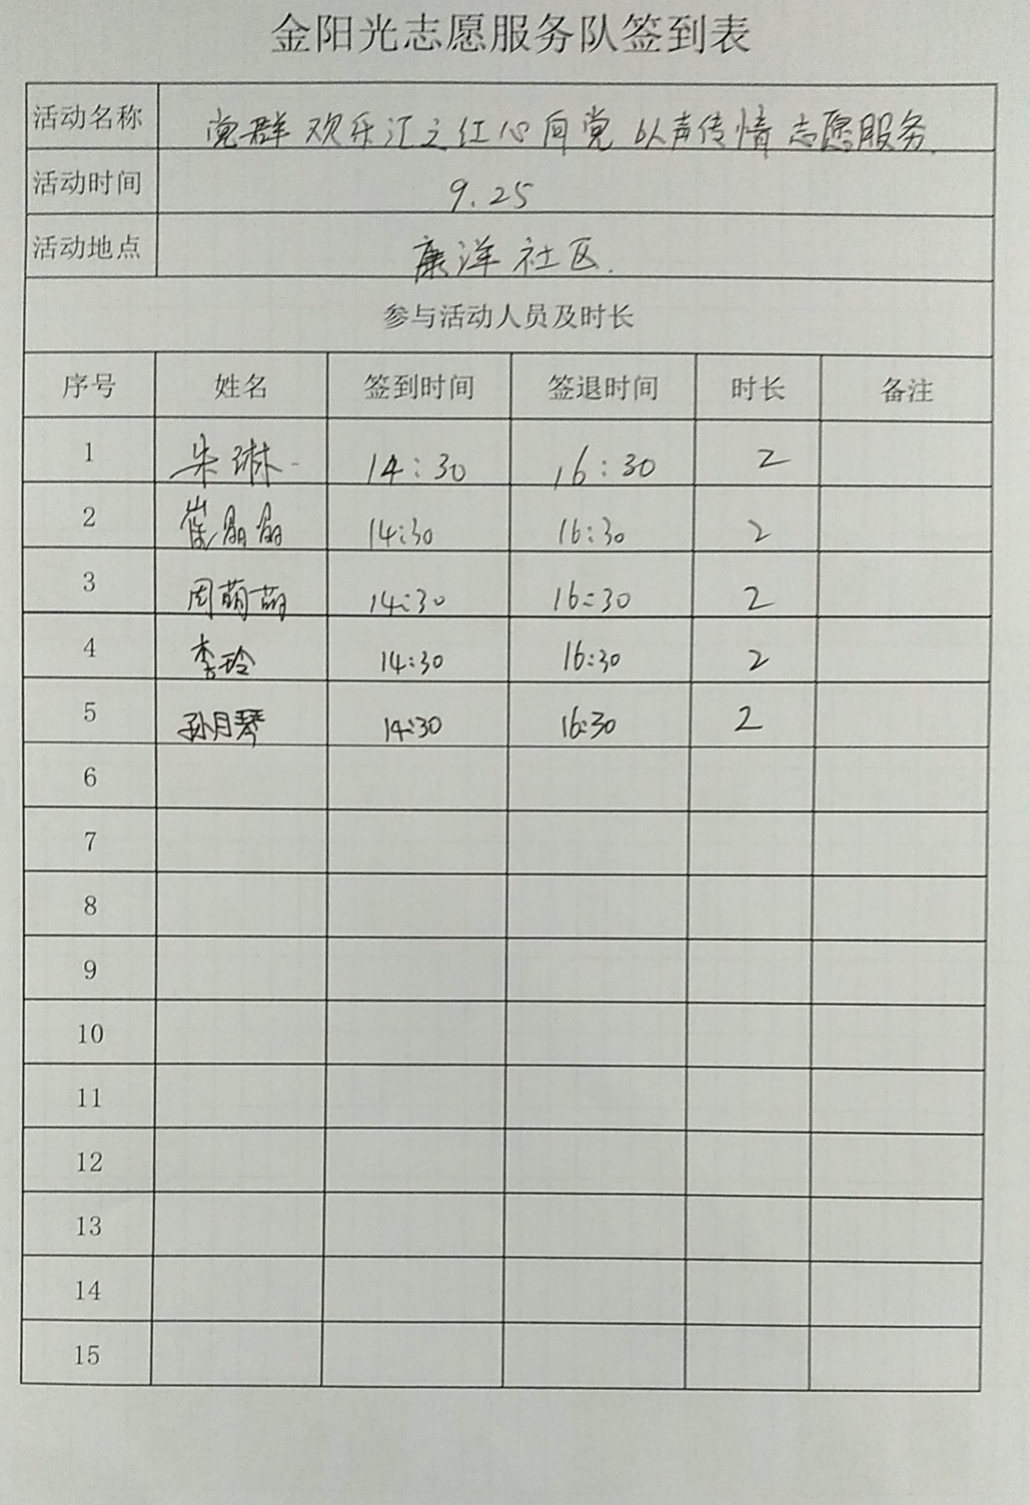 金阳光志愿服务队签到表
活动名称 党群欢乐汇之红心向党 以声传情 志愿服务.
活动时间 9.25
活动地点 康洋社区.
参与活动人员及时长
序号 姓名 签到时间 签退时间 时长 备注
1 朱琳 14:30 16:30 2
2 崔晶晶 14:30 16:30 2
3 周萌萌 14:30 16:30 2
4 李玲 14:30 16:30 2
5 孙月琴 14:30 16:30 2
6
7
8
9
10
11
12
13
14
15